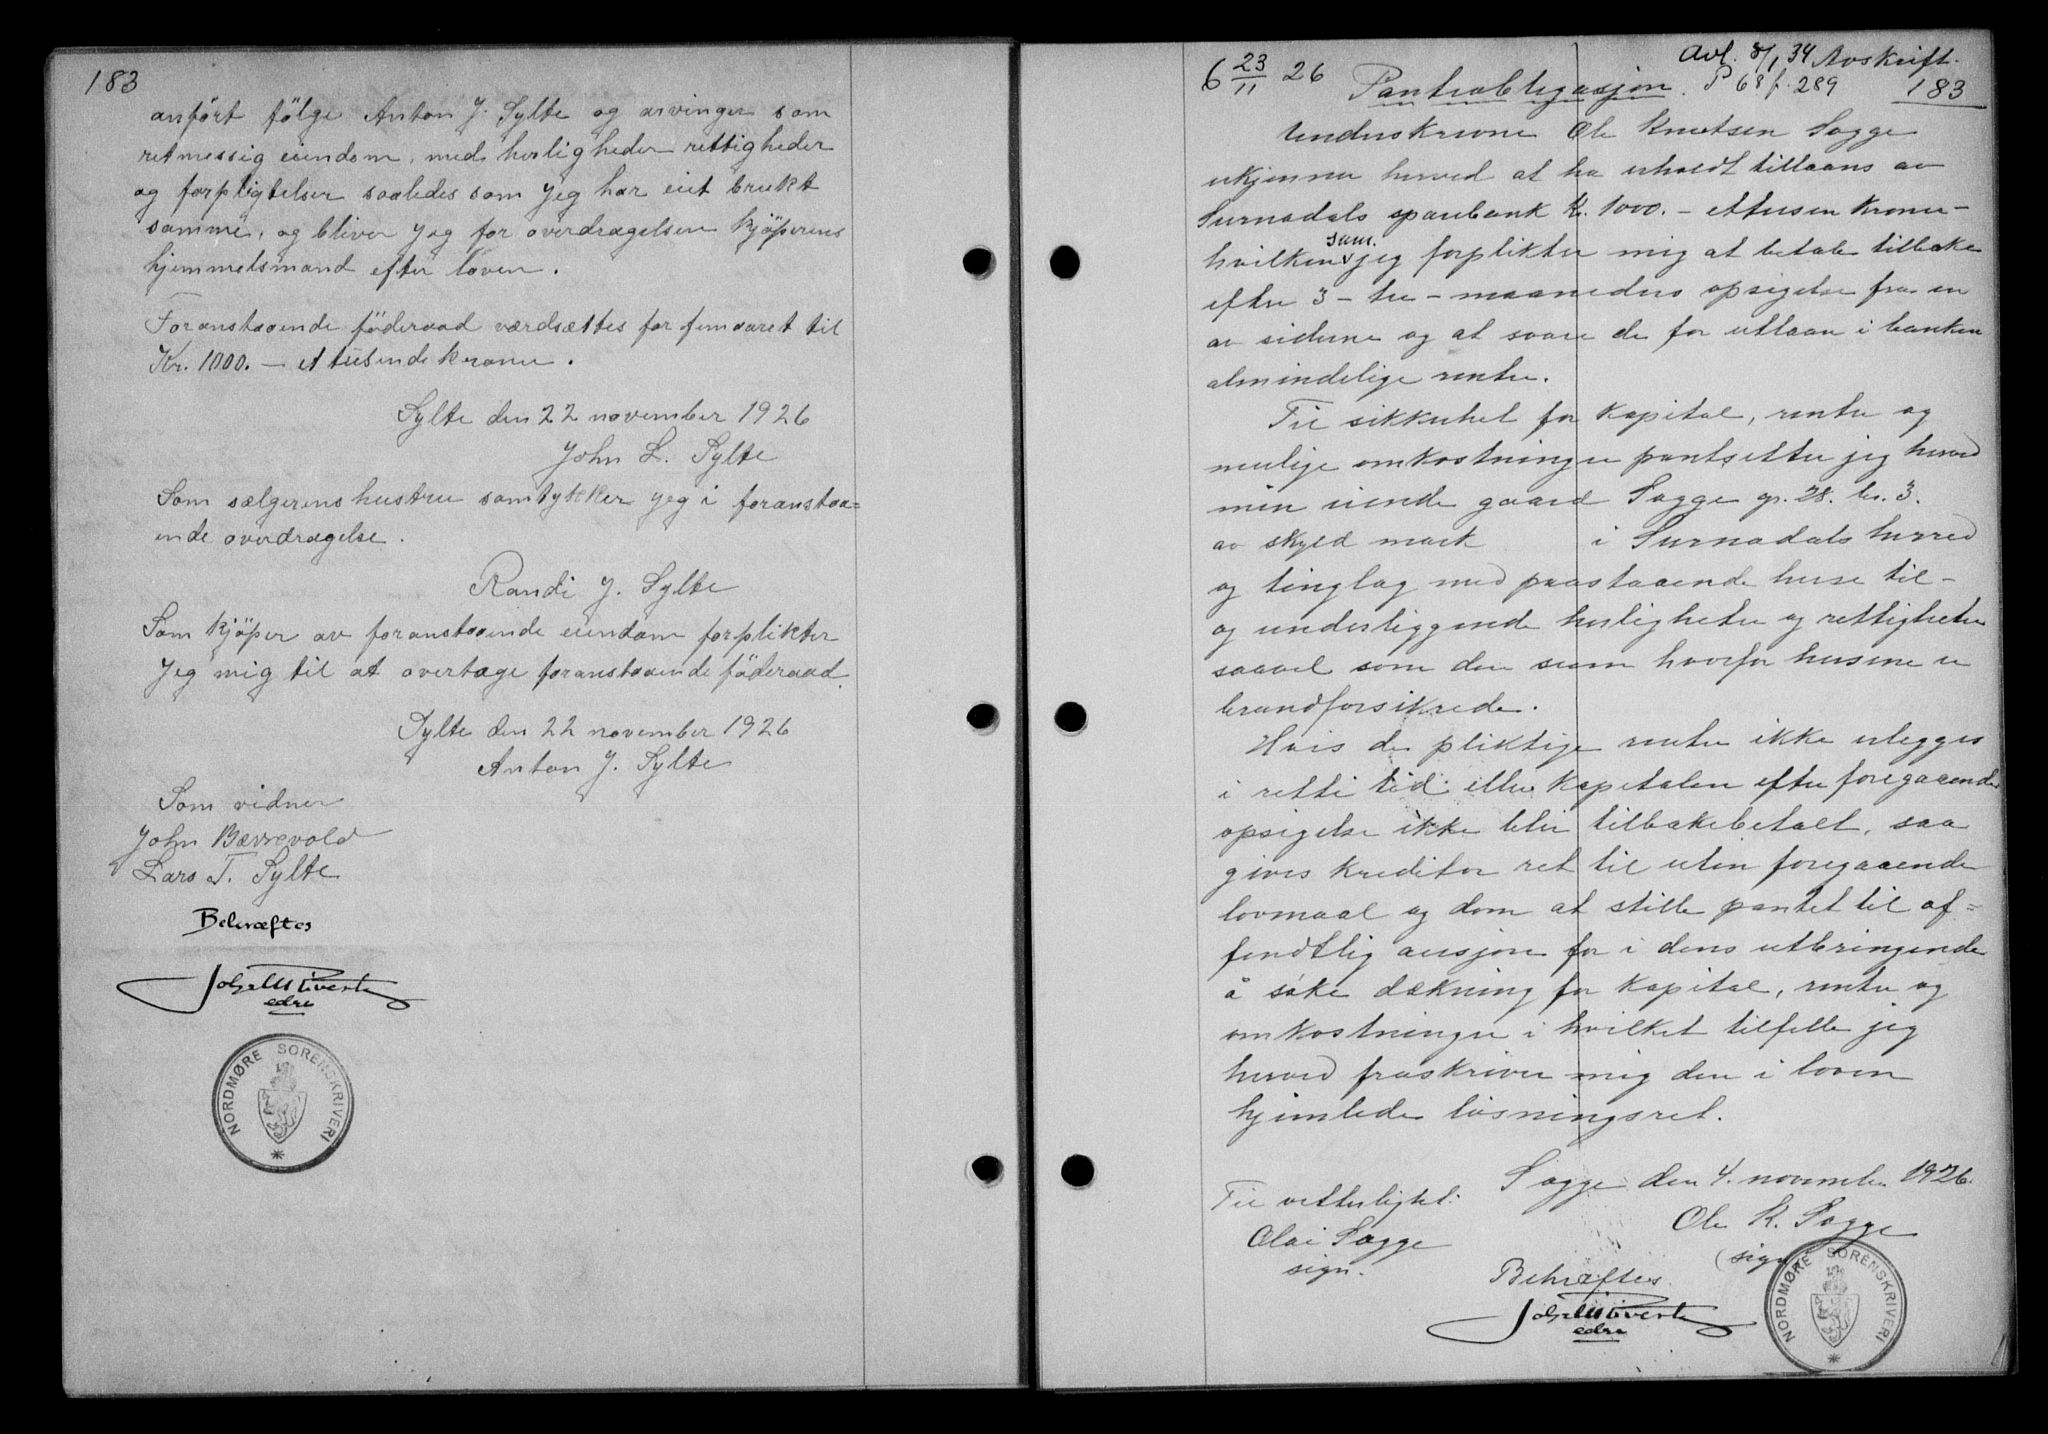 183
anført følge Anton J. Sylte og arvinger som
retmessig eiendom, med herligheder rettigheder
og forpligtelser saaledes som jeg har eiet brukt
samme, og bliver jeg for overdragelsen kjøperens
hjemmelsmand efter loven.
Foranstaaende føderaad værdsættes for femaaret til
Kr. 1000. — et tusende kroner.
Sylte den 22 november 1926
John L. Sylte
Som sælgerens hustru samtykker jeg i foranstaa=
ende overdragelse.
Randi J. Sylte
Som kjøper av foranstaaende eiendom forplikter
jeg mig til at overtage foranstaaende føderaad.
Sylte den 22 november 1926
Anton J. Sylte
Som vidner
John Bævrevold
Lars T. Sylte
Bekræftes
edre
NORDMØRE SORENSKRIVERI
Avl. 8/1 34 Avskrift.
6 23/11 26 Pantobligasjon. P 68 f. 289 183
Underskrevne Ole Knutsen Sogge
erkjenner herved at ha erholdt tillaans av
Surnadals sparebank Kr. 1000. – ettusen kroner –
hvilken sum jeg forplikter mig at betale tilbake
efter 3 – tre – maaneders opsigelse fra en
av siderne og at svare de for utlaan i banken
almindelige renter.
Til sikkerhet for kapital, renter og
mulige omkostninger pantsetter jeg herved
min eiende gaard Sogge gr. 28. br. 3.
av skyld mark i Surnadals herred
og tinglag med paastaaende huse til-
og underliggende herligheter og rettigheter
saavel som den sum hvorfor husene er
brandforsikrede.
Hvis de pliktige renter ikke erlegges
i rette tid eller kapitalen efter foregaaende
opsigelse ikke blir tilbakebetalt, saa
gives kreditor ret til uten foregaaende
lovmaal og dom at stille pantet til of=
fendtlig auksjon for i dens utbringende
å søke dækning for kapital, renter og
omkostninger i hvilket tilfelle jeg
herved fraskriver mig den i loven
hjemlede løsningsret.
Sogge den 4. november 1926.
Til vitterlighet:
Ole K. Sogge
(sign)
Olai Sogge
sign.
Bekræftes.
edre
NORDMØRE SORENSKRIVERI